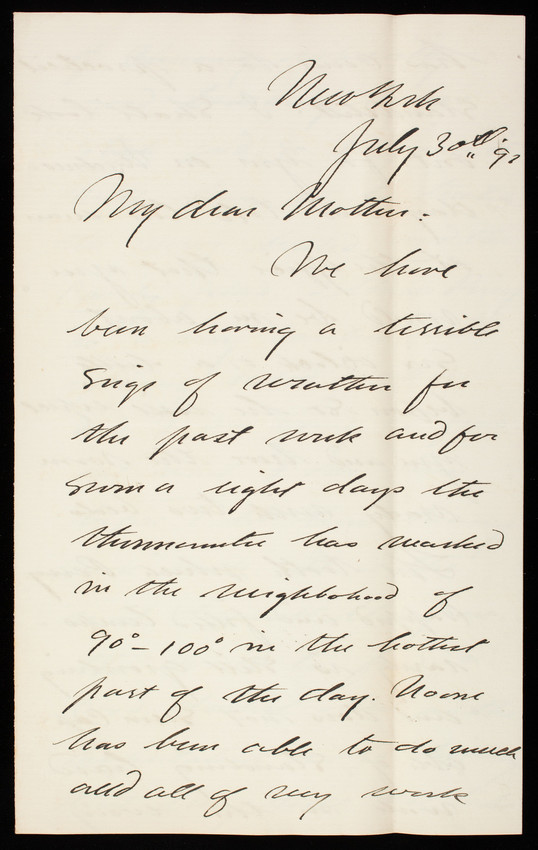 New York
July 30th '92
My dear Mother:
We have
been having a terrible
Seige of weather for
the past week and for
seven or eight days the
thermometer has marked
in the neighbohood of
90°-100° in the hottest
part of the day. No one
has been able to do much
and all of my work